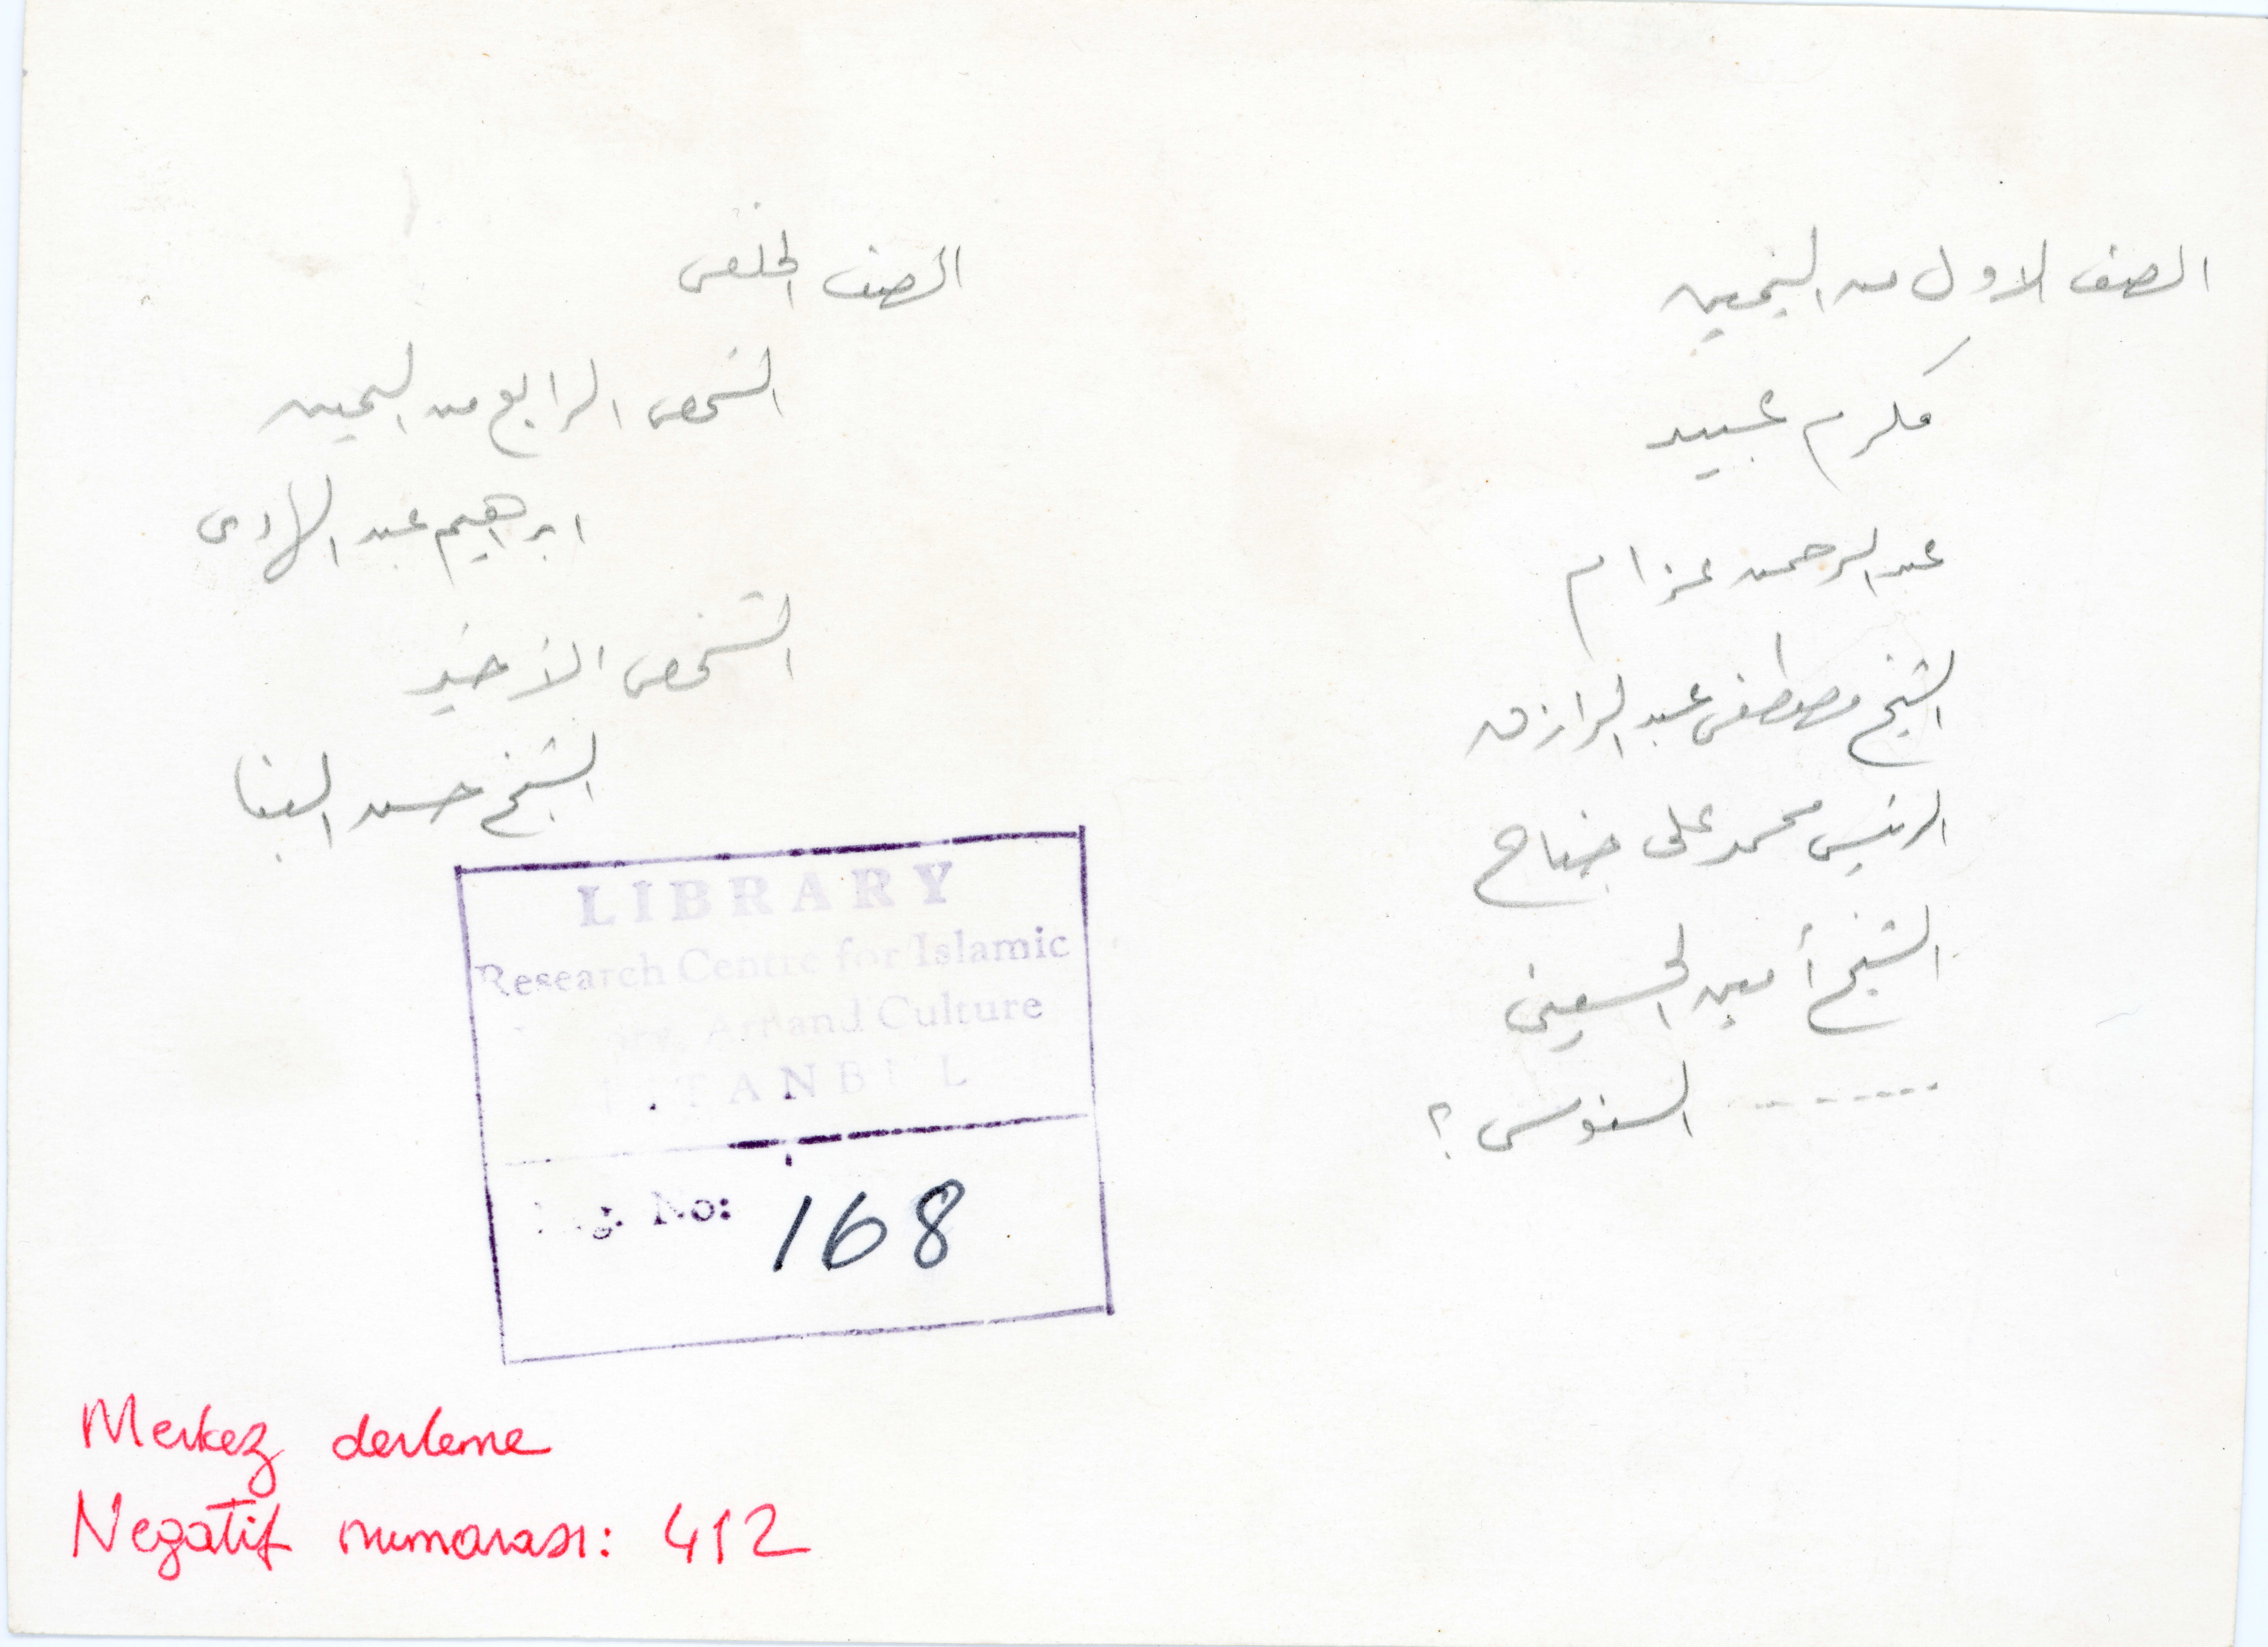 الصف الاول من اليمين
مكرم عبيد
عبد الرحمن عزام
الشيخ مصطفى عبد الرازق
الرئيس محمد على جناح
الشيخ أمين الحسينى
------- السنوسى ؟
الصف الخلفى
الشخص الرابع من اليمين
ابراهيم عبد الهادى
الشخص الأخير
الشيخ حسن البنا
LIBRARY
Research Centre for Islamic
Art and Culture
No: 168
Merkez derleme
Negatif numarası: 412